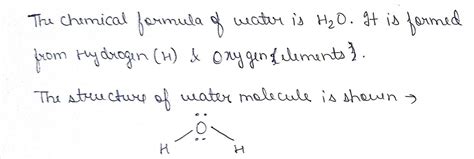 The chemical formula of water is H₂O. It is formed
from Hydrogen (H) & Oxygen {elements}.
The structure of water molecule is shown →
O
H H